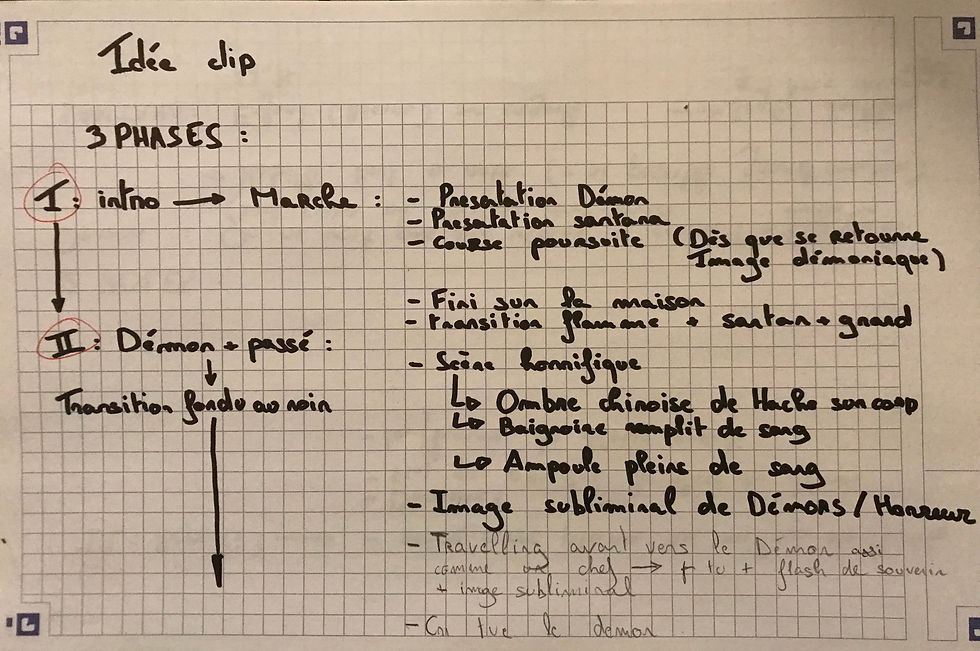 Idée clip
3 PHASES :
I : intro → Marche : - Presatation Démon
- Presatation santana
- course poursuite (Dès que se retourne
Image démoniaque)
- Fini sur la maison
- transition flamme + santan + grand
II : Démon + passé :
- Scène horrifique
Transition fondu au noir
↳ Ombre chinoise de Hache son coup
↳ Baignoire remplit de sang
↳ Ampoule pleins de sang
- Image subliminal de Démons / Horreur
- Travelling avant vers le Démon assi
comme un chef → + flash de souvenir
+ image subliminal
- Cri tue le demon